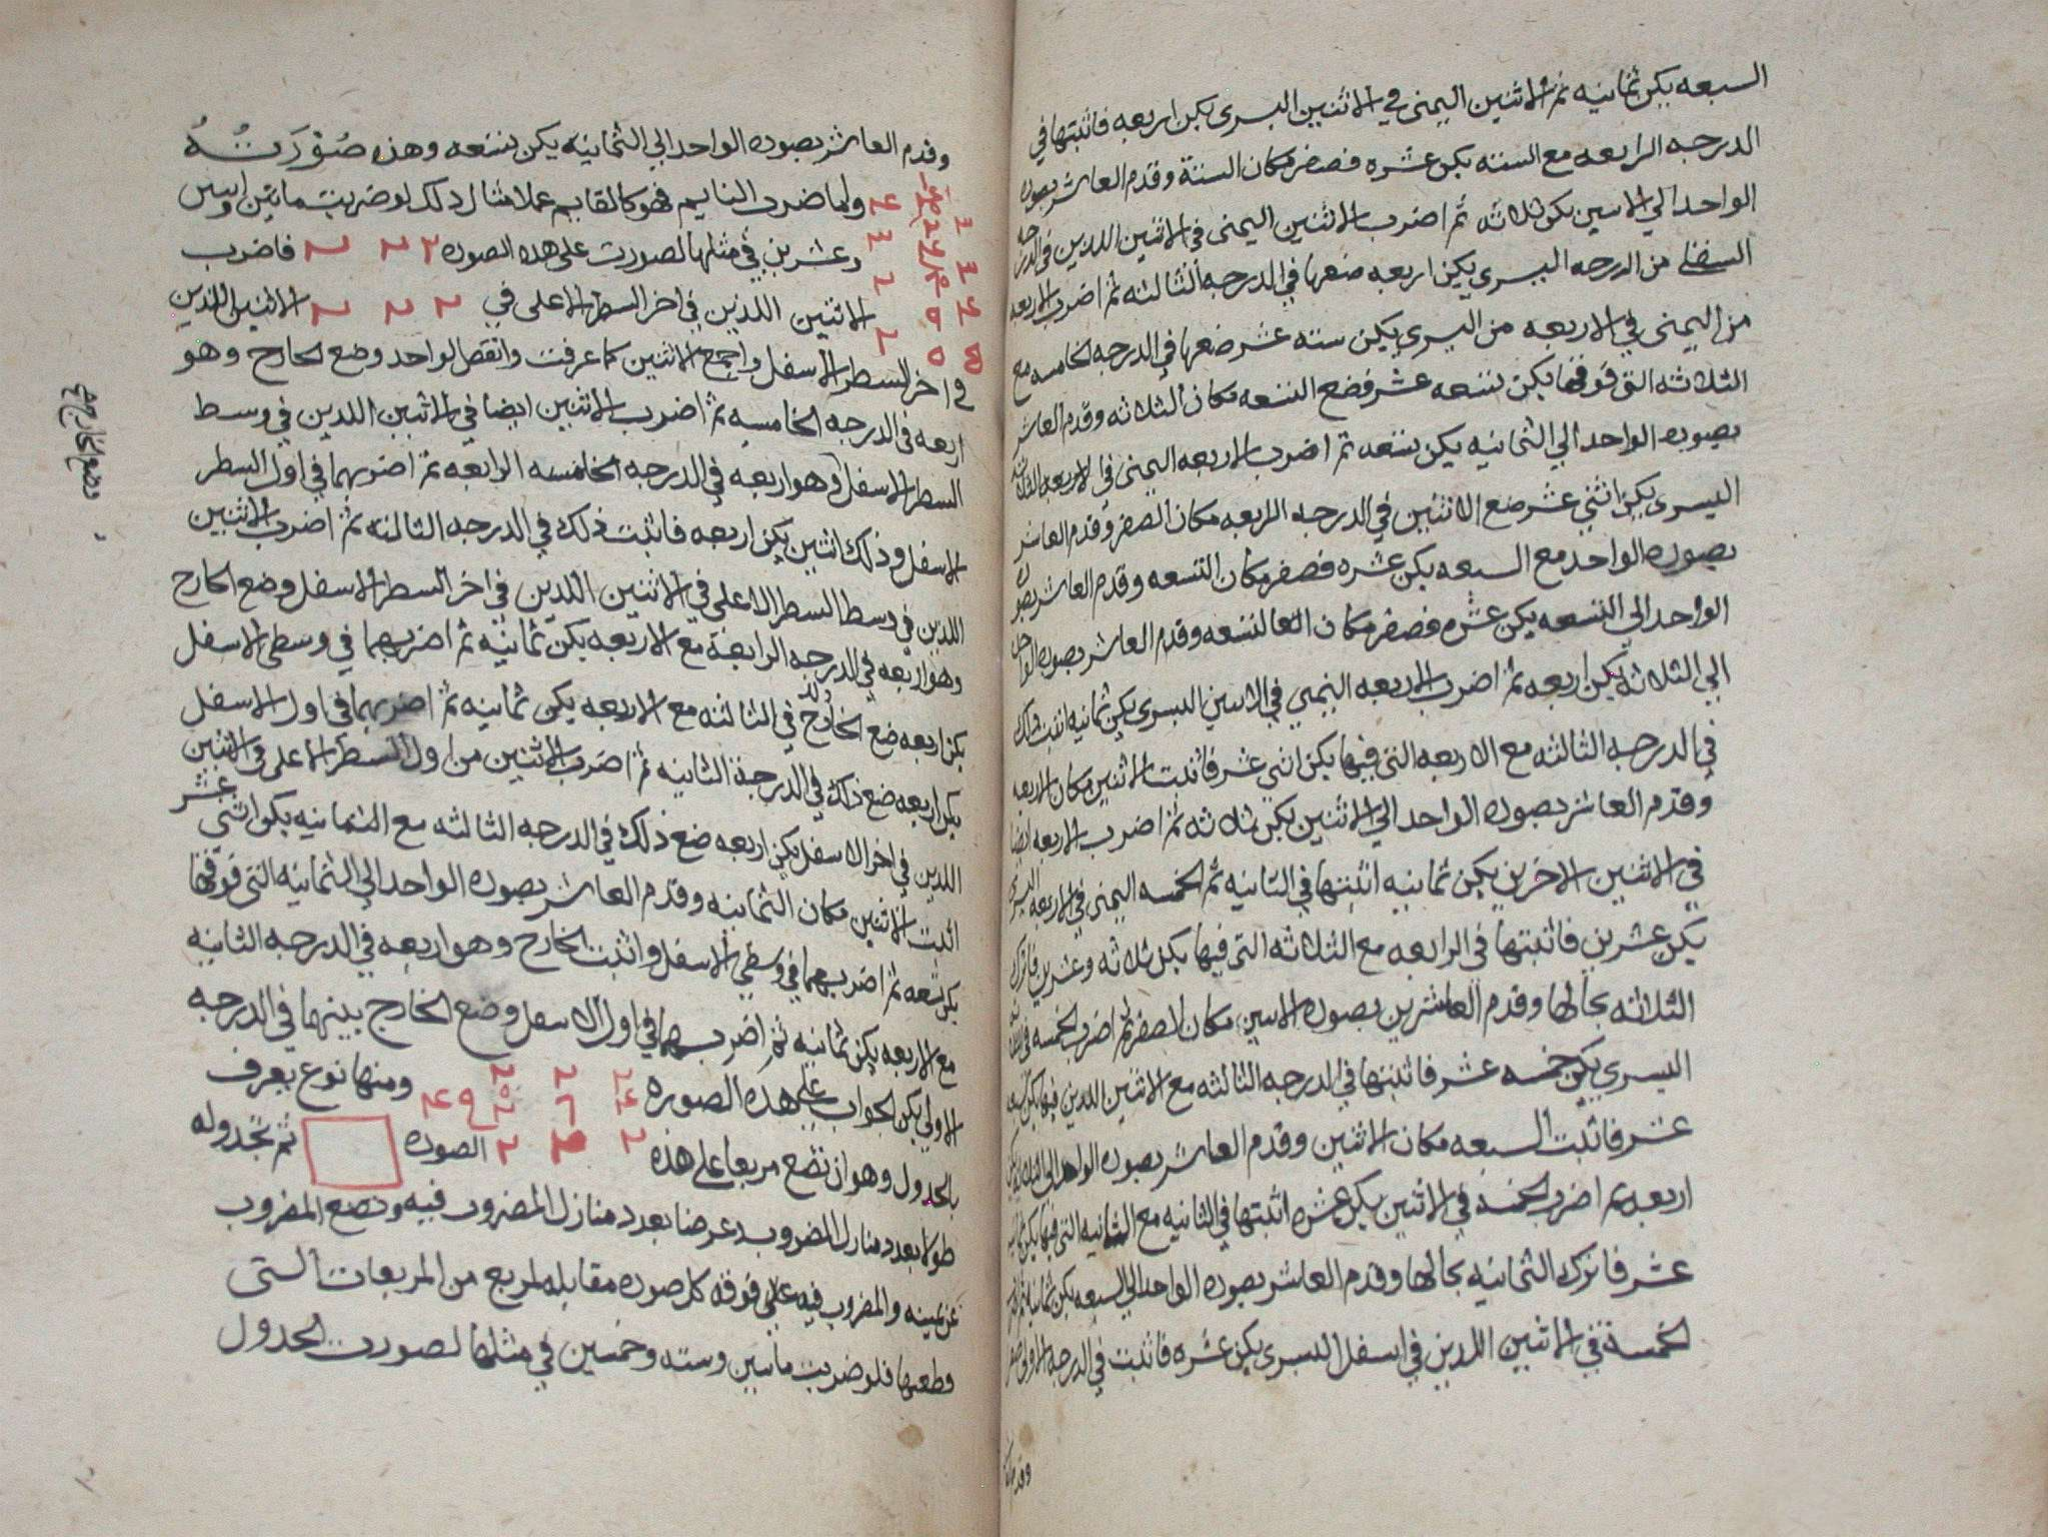 السبعه يكن ثمانيه ثم الاثنين اليمنى في الاثنين اليسرى يكن اربعه فاثبتها في
الدرجه الرابعه مع السته يكن عشره فصفر مكان الستة وقدم العاشر بصوره
الواحد الي الاثنين يكن ثلاثه ثم اضرب الاثنين اليمنى في الاثنين اللذين في الدرجه
السفلى من الدرجه اليسرى يكن اربعه ضعها في الدرجه الثالثه ثم اضرب الاربعه
من اليمنى في الاربعه من اليسرى يكن سته عشر ضعها في الدرجه الخامسه مع
الثلاثه التي فوقها يكن تسعه عشر فضع التسعه مكان الثلاثه وقدم العاشر
بصوره الواحد الي الثمانيه يكن تسعه ثم اضرب الاربعه اليمنى في الاربعه
اليسرى يكن اثني عشر ضع الاثنين في الدرجه الرابعه مكان الصفر وقدم العاشر
بصوره الواحد مع السبعه يكن عشره فصفر مكان التسعه وقدم العاشر بصوره
الواحد الي التسعه يكن عشره فصفر مكان التسعه وقدم العاشر بصوره الواحد
الي الثلاثه يكن اربعه ثم اضرب الاربعه اليمنى في الاثنين اليسرى يكن ثمانيه اثبت ذلك
في الدرجه الثالثه مع الاربعه التي فيها يكن اثني عشر فاثبت الاثنين مكان الاربعه
وقدم العاشر بصوره الواحد الي الاثنين يكن ثلاثه ثم اضرب الاربعه ايضا
في الاثنين الاخرين يكن ثمانيه اثبتها في الثانيه ثم الخمسه اليمنى في الاربعه اليسرى
يكن عشرين فاثبتها في الرابعه مع الثلاثه التي فيها يكن ثلاثه وعشرين فاترك
الثلاثه بحالها وقدم العاشرين بصوره الاثنين مكان الصفر ثم اضرب الخمسه في
اليسرى يكن خمسه عشر فاثبتها في الدرجه الثالثه مع الاثنين اللذين فيها يكن سبعه
عشر فاثبت السبعه مكان الاثنين وقدم العاشر بصوره الواحد الي الثلاثه يكن
اربعه ثم اضرب الخمسة في الاثنين يكن عشره اثبتها في الثانيه مع الثمانيه التي فيها يكن ثمانيه
عشر فاترك الثمانيه بحالها وقدم العاشر بصوره الواحد الي السبعه يكن ثمانيه ثم اضرب
الخمسة في الاثنين اللذين في اسفل اليسرى يكن عشره فاثبت في الدرجه الاولى صفر
وقدم
وقدم العاشر بصوره الواحد الي الثمانيه يكن تسعه وهذه صُوْرَتُهُ
واما ضرب النايم فهو كالقايم عملا مثال ذلك لو ضربت مائتين واثنين
وعشرين في مثلها لصورت على هذه الصوره ٢ ٢ ٢ فاضرب
الاثنين اللذين في اخر السطر الاعلى في ٢ ٢ ٢ الاثنين اللذين
في اخر السطر الاسفل واجمع الاثنين كما عرفت وانقص الواحد وضع الخارج وهو
اربعه في الدرجه الخامسه ثم اضرب الاثنين ايضا في الاثنين اللذين في وسط
السطر الاسفل وهو اربعه في الدرجه الخامسه الرابعه ثم اضربهما في اول السطر
الاسفل وذلك اثنين يكن اربعه فاثبت ذلك في الدرجه الثالثه ثم اضرب الاثنين
اللذين في وسط السطر الاعلى في الاثنين اللذين في اخر السطر الاسفل وضع الخارج
وهو اربعه في الدرجه الرابعة مع الاربعه يكن ثمانيه ثم اضربهما في وسطى الاسفل
يكن اربعه ضع الخارج في الثالثه مع الاربعه يكن ثمانيه ثم اضربهما في اول الاسفل
يكن اربعه ضع ذلك في الدرجة الثانيه ثم اضرب الاثنين من اول السطر الاعلى في الاثنين
اللذين في اخر الاسفل يكن اربعه ضع ذلك في الدرجه الثالثه مع الثمانيه يكن اثني عشر
اثبت الاثنين مكان الثمانيه وقدم العاشر بصوره الواحد الي الثمانيه التي فوقها
يكن تسعه ثم اضربهما في وسطي الاسفل واثبت الخارج وهو اربعه في الدرجه الثانيه
مع الاربعه يكن ثمانيه ثم اضربهما في اول الاسفل وضع الخارج بينهما في الدرجه
الاولى يكن الجواب على هذه الصوره ومنها نوع يعرف
بالجدول وهو ان تضع مربعا على هذه الصوره ثم تجدوله
طولا بعدد منازل المضروب وعرضا بعدد منازل المضروب فيه وتضع المضروب
عن يمينه والمضروب فيه على فوقه كل صوره مقابله لمربع من المربعات التي
قطعتها فلو ضربت مائتين وسته وخمسين في مثلها لصورت الجدول